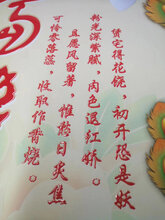 赁宅得花饶，初开恐是妖
粉光深紫腻，肉色退红娇。
且愿风留著，惟愁日炙焦
可怜零落蕊，收取作香烧。